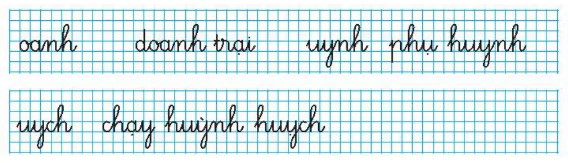 oanh doanh trại uynh phụ huynh
uych chạy huỳnh huỵch